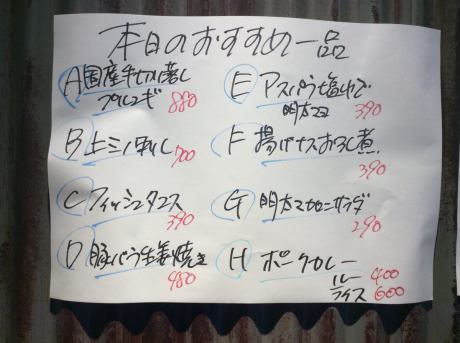 本日のおすすめ一品
A 国産牛切り落し
プルコギ 880
B 上ミノ刺し 700
C フィッシュタコス
390
D 豚バラ生姜焼き
980
E アスパラ塩ゆで
明太マヨ 390
F 揚げナスおろし煮
390
G 明太マカロニサラダ
290
H ポークカレー
ルー 400
ライス 600